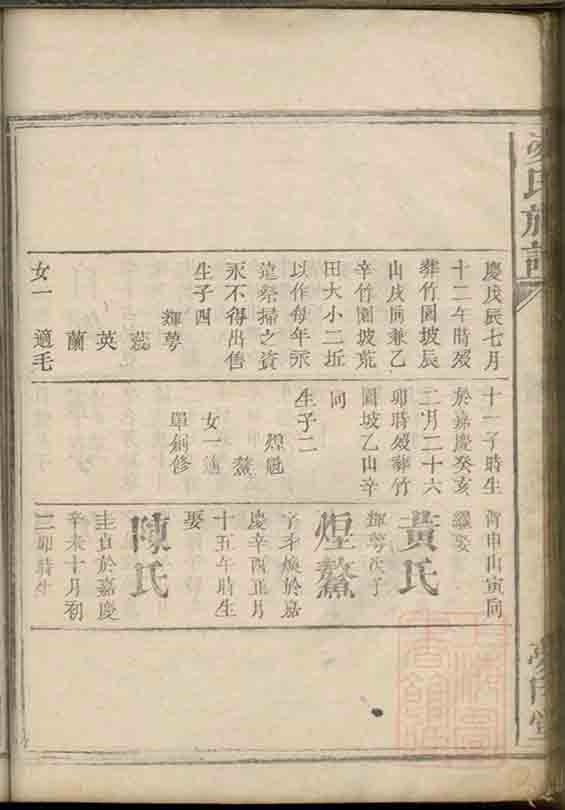 慶戊辰七月
十二午時歿
葬竹園坡辰
山戌向兼乙
辛竹園坡荒
田大小二坵
以作每年永
遠祭掃之資
永不得出售
生子四
輝蕚
蕊
英
蘭
女一 適毛
十一子時生
於嘉慶癸亥
二月二十六
卯時歿葬竹
園坡乙山辛
向
生子二
煌魁
鰲
女一適
單劍修
背申山寅向
繼娶
黃氏
輝蕚次子
煌鰲
字才煥於嘉
慶辛酉正月
十五午時生
娶
陳氏
圭貞於嘉慶
辛未十月初
二卯時生
氏族譜
堂